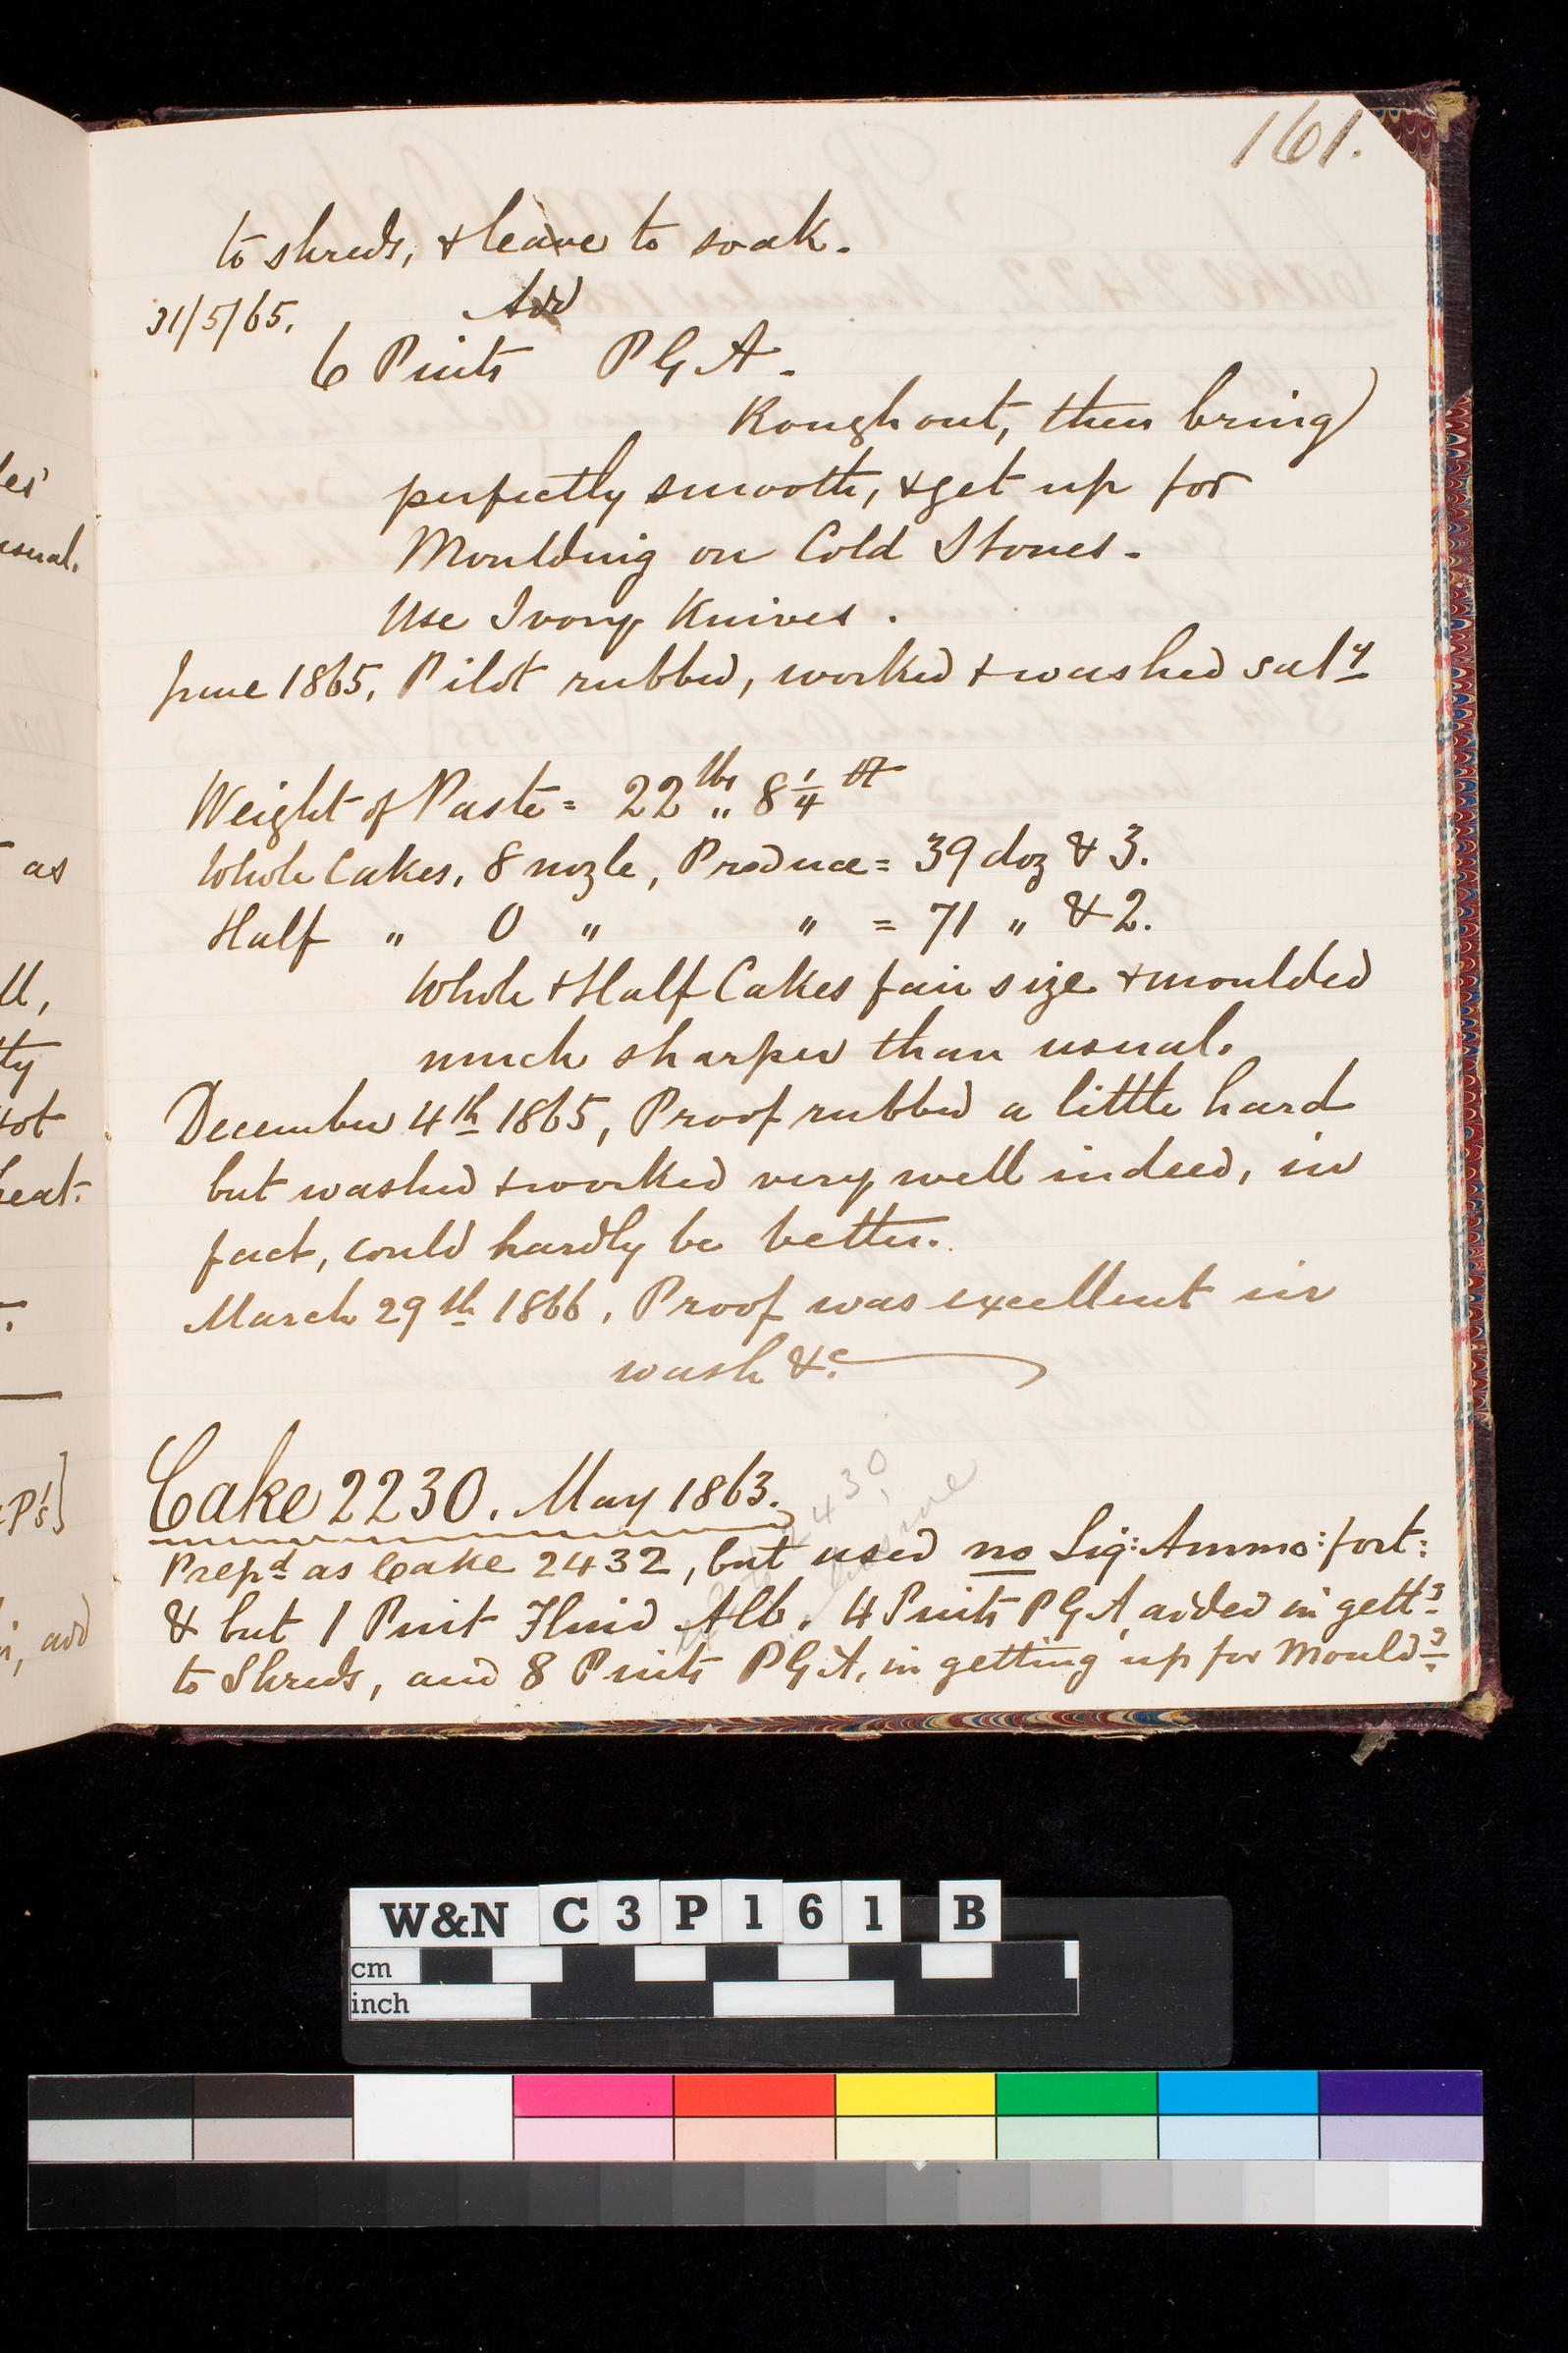 161.
to shreds, & leave to soak.
31/5/65. Add
6 Pints P G A.
Rough out, then bring
perfectly smooth, & get up for
Moulding on Cold Stones.
Use Ivory Knives.
June 1865, Pilot rubbed, worked & washed saty
Weight of Paste = 22 lbs „ 8 1/4 oz
Whole Cakes, 8 nozle, Produce = 39 doz & 3.
Half „ 0 „ „ = 71 „ & 2.
Whole & Half Cakes fair size & moulded
much sharper than usual.
December 4th 1865, Proof rubbed a little hard
but washed & worked very well indeed, in
fact, could hardly be better.
March 29th 1866, Proof was excellent in
wash &c.
Cake 2230. May 1863.
Prepd as Cake 2432, but used no Liq: Ammo: fort:
& but 1 Pint Fluid Alb. 4 Pints P G A, added in gettg
to Shreds, and 8 Pints P G A, in getting up for Mouldg
es'
usual.
as
ll,
ty
not
heat.
P's]
add
W&N C3P161 B
cm
inch